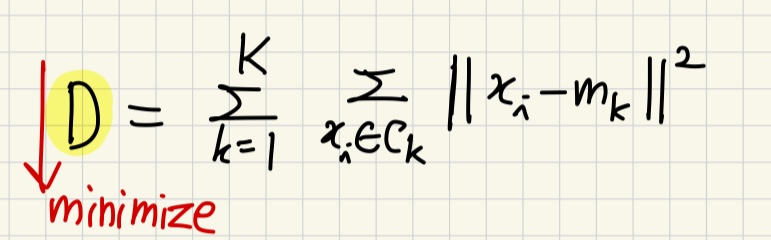 D = K Σ k=1 Σ xᵢ∈Cₖ ‖xᵢ − mₖ‖²
minimize